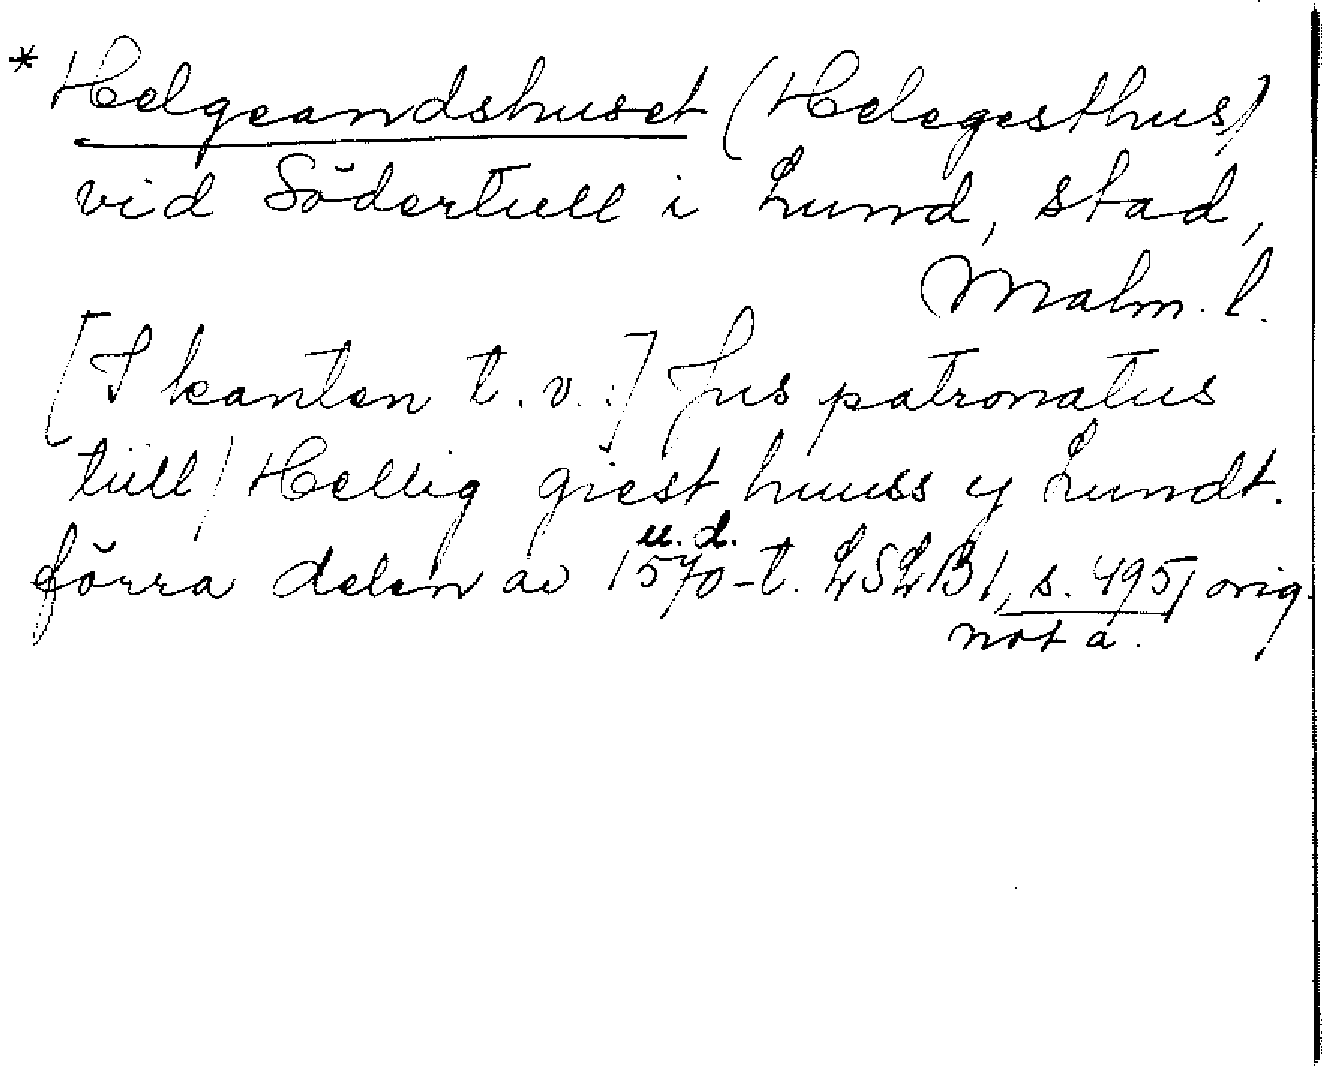 * Helgeandshuset (Helegesthus)
vid Södertull i Lund, stad,
Malm. l.
[I kanten t. v.:] Jus patronatus
tiill / Hellig giest huuss y Lundt.
u. d.
förra delen av 1570-t. LSLB 1, s. 495, orig.
not a.